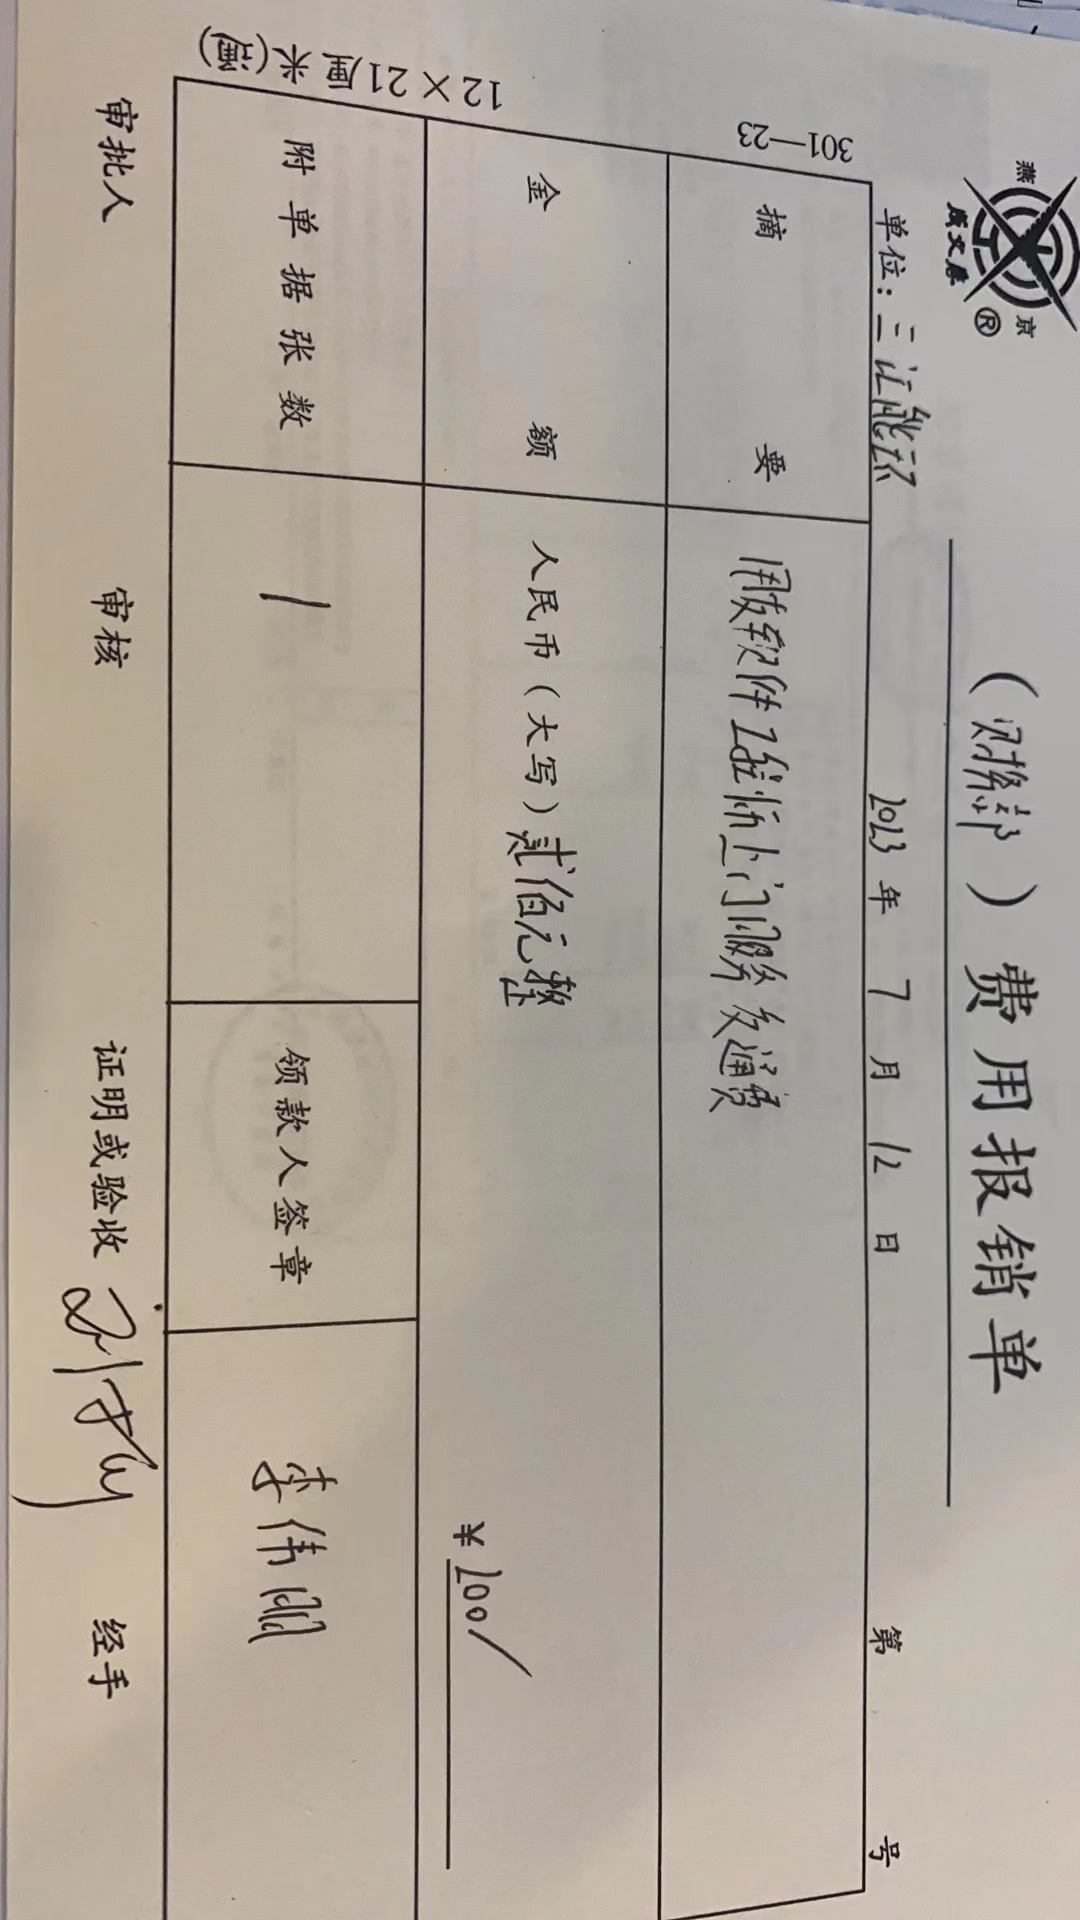 燕 京
®
(财务部)费用报销单
单位:三江能源 2023年7月12日 第 号
301—23
摘要 用友软件工程师上门服务交通费
金额 人民币(大写)贰佰元整
¥200/
附单据张数 1 领款人签章 李伟刚
审批人 审核 证明或验收 经手
12×21厘米(通)